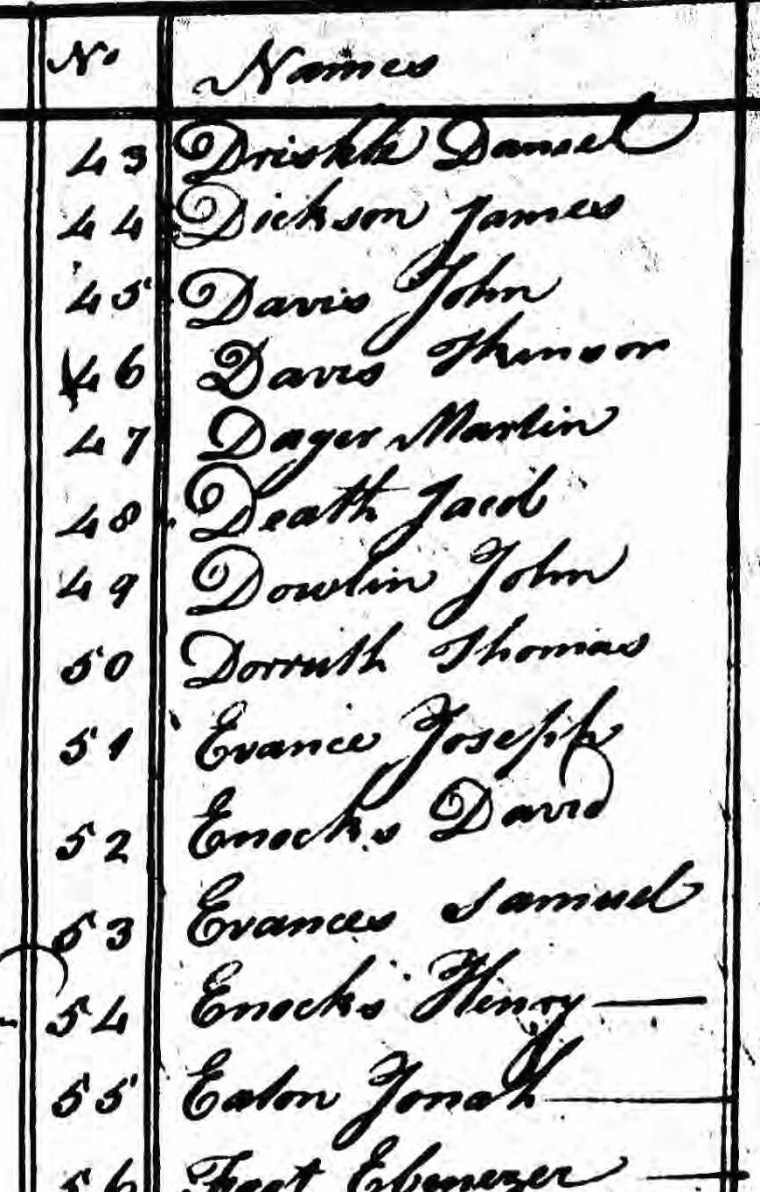 No Names
43 Driskle Daniel
44 Dickson James
45 Davis John
46 Davis
47 Dager Martin
48 Death Jacob
49 Dowlin John
50 Dorruth Thomas
51 Evance Joseph
52 Enocks David
53 Evances Samuel
54 Enocks Henry
55 Eaton Jonah
56 Foot Ebenezer